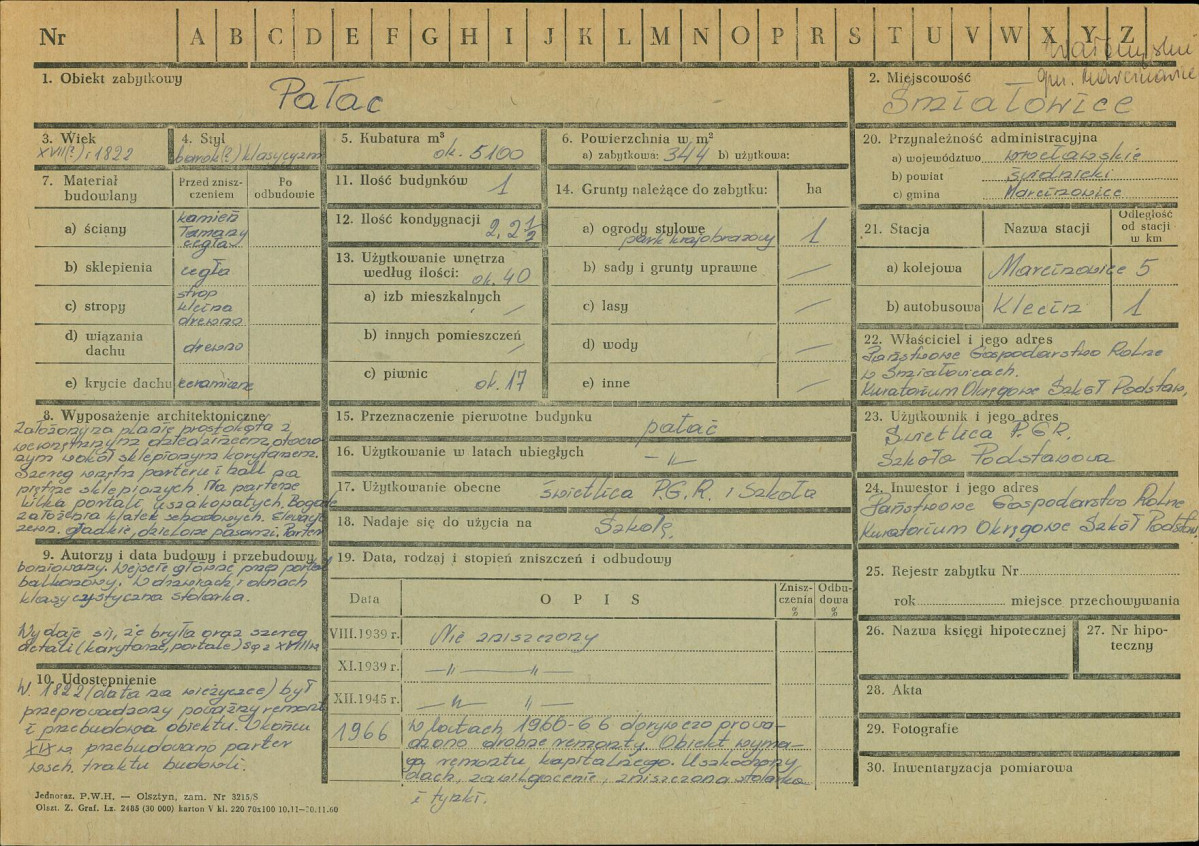 Nr A B C D E F G H I J K L M N O P R S T U V W X Y Z
gm. Marcinowice
1. Obiekt zabytkowy
Pałac
2. Miejscowość
Śmiałowice
3. Wiek
XVII(?) i 1822
4. Styl
barok(?) klasycyzm
5. Kubatura m³
ok. 5100
6. Powierzchnia w m²
a) zabytkowa: 344 b) użytkowa:
20. Przynależność administracyjna
a) województwo wrocławskie
b) powiat świdnicki
c) gmina Marcinowice
7. Materiał budowlany
Przed zniszczeniem
Po odbudowie
a) ściany
kamień
łamany
cegła
b) sklepienia cegła
c) stropy
strop
kleina
drewno
d) wiązania dachu drewno
e) krycie dachu ceramiczne
11. Ilość budynków 1
12. Ilość kondygnacji 2, 2 ½
13. Użytkowanie wnętrza
według ilości: ok. 40
a) izb mieszkalnych /
b) innych pomieszczeń /
c) piwnic ok. 17
14. Grunty należące do zabytku: ha
a) ogrody stylowe 1
park krajobrazowy
b) sady i grunty uprawne —
c) lasy —
d) wody —
e) inne —
21. Stacja
Nazwa stacji
Odległość od stacji w km
a) kolejowa Marcinowice 5
b) autobusowa Klecin 1
22. Właściciel i jego adres
Państwowe Gospodarstwo Rolne
w Śmiałowicach.
Kuratorium Okręgowe Szkół Podstaw.
8. Wyposażenie architektoniczne
Założony na planie prostokąta z
wewnętrznym dziedzińcem, otoczo-
nym wokół sklepionym korytarzem.
Szereg wnętrz parteru i hall na
piętrze sklepionych. Na parterze
kilka portali uszakowatych. Bogate
założenia klatek schodowych. Elewacje
zewn. gładkie, dzielone pasami. Parter
9. Autorzy i data budowy i przebudowy
boniowany. Wejście główne przez portal
balkonowy. W drzwiach i oknach
klasycystyczna stolarka.
Wydaje się, że bryła oraz szereg
detali (korytarze, portale) są z XVII w
10. Udostępnienie
W 1822 (data na wieżyczce) był
przeprowadzony poważny remont
i przebudowa obiektu. W końcu
XIX w. przebudowano parter
wsch. traktu budowli.
15. Przeznaczenie pierwotne budynku pałac
16. Użytkowanie w latach ubiegłych -"-
17. Użytkowanie obecne świetlica P.G.R. i Szkoła
18. Nadaje się do użycia na Szkołę.
23. Użytkownik i jego adres
Świetlica P.G.R.
Szkoła Podstawowa
24. Inwestor i jego adres
Państwowe Gospodarstwo Rolne
Kuratorium Okręgowe Szkół Podstaw.
19. Data, rodzaj i stopień zniszczeń i odbudowy
Data
O P I S
Zniszczenia %
Odbudowa %
VIII.1939 r. Nie zniszczony
XI.1939 r. —"— —"—
XII.1945 r. —"— "—
1966 W latach 1960-66 dorywczo prowa-
dzono drobne remonty. Obiekt wyma-
ga remontu kapitalnego. Uszkodzony
dach, zawilgocenie, zniszczona stolarka
i tynki.
25. Rejestr zabytku Nr
rok miejsce przechowywania
26. Nazwa księgi hipotecznej
27. Nr hipoteczny
28. Akta
29. Fotografie
30. Inwentaryzacja pomiarowa
Jednoraz. P.W.H. — Olsztyn, zam. Nr 3215/S
Olszt. Z. Graf. Lz. 2485 (30 000) karton V kl. 220 70x100 10.11—20.11.60